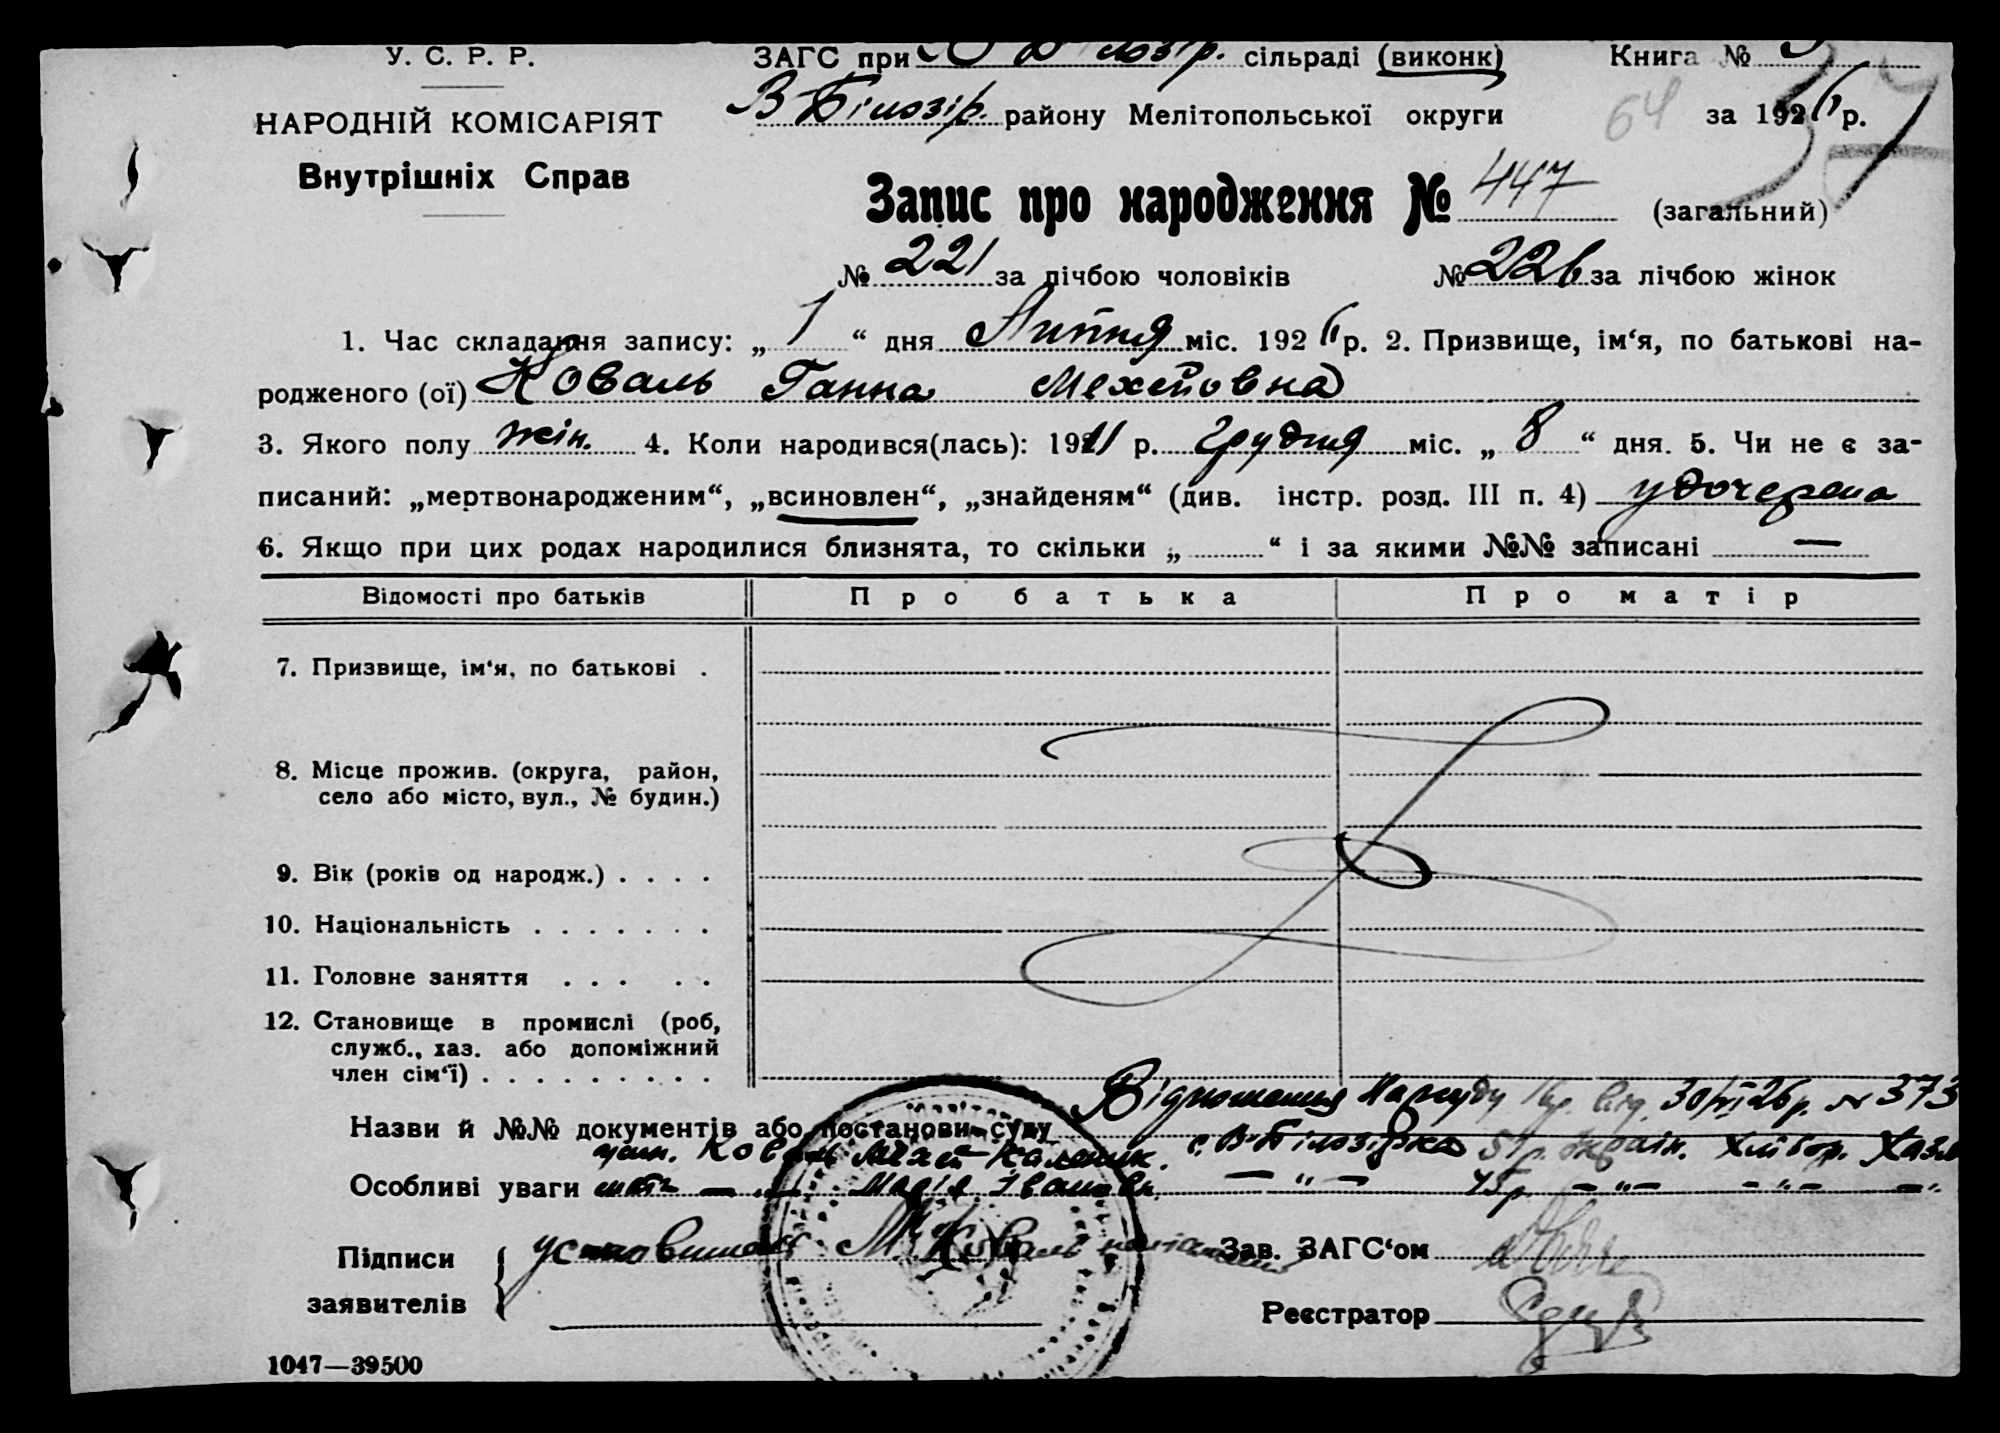 У. С. Р. Р.
НАРОДНІЙ КОМІСАРІЯТ
Внутрішніх Справ
ЗАГС при сільраді (виконк) Книга №
В-Білозір. району Мелітопольської округи 64 за 1926 р. 57
Запис про народження № 447 (загальний)
№ 221 за лічбою чоловіків № 226 за лічбою жінок
1. Час складання запису: „ 1 “ дня Липня міс. 1926 р. 2. Призвище, ім‘я, по батькові на-
родженого (ої) Коваль Ганна Мехетовна
3. Якого полу жін. 4. Коли народився(лась): 1911 р. грудня міс. „ 8 “ дня. 5. Чи не є за-
писаний: „мертвонародженим“, „всиновлен“, „знайденям“ (див. інстр. розд. III п. 4) удочерена
6. Якщо при цих родах народилися близнята, то скільки „ “ і за якими №№ записані —
Відомості про батьків Про батька Про матір
7. Призвище, ім‘я, по батькові .
8. Місце прожив. (округа, район,
село або місто, вул., № будин.)
9. Вік (років од народж.) . . . .
10. Національність . . . . . . .
11. Головне заняття . . . . .
12. Становище в промислі (роб,
служб., хаз. або допоміжний
член сім‘ї) . . . . . . . . .
Відношення Нарсуду від 30/VI 26 р. № 373
Назви й №№ документів або постанови суду
Коваль Мехет с. В-Білозірка 51 р. україн. хлібор. хазя
Особливі уваги мать — „ — Марія Іванівн. — „ — 45 р. — „ — — „ — — „
Підписи
заявителів
установители М. Коваль
Зав. ЗАГС‘ом
Реєстратор
1047—39500